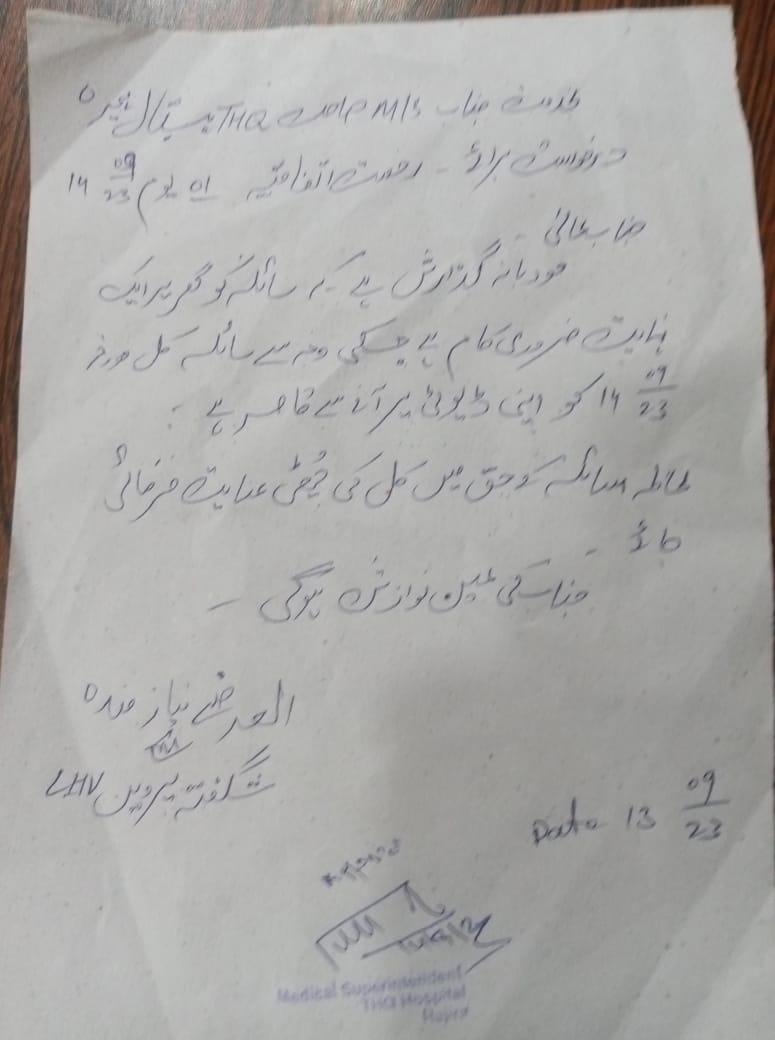 بخدمت جناب M/S صاحب THQ ہسپتال ہجیرہ
درخواست برائے - رخصت اتفاقیہ 01 یوم 14 09/23
جناب عالی
مودبانہ گذارش ہے کہ سائلہ کو گھر پر ایک
نہایت ضروری کام ہے جسکی وجہ سے سائلہ کل مورخہ
14 09/23 کو اپنی ڈیوٹی پر آنے سے قاصر ہے :
لہذا سائلہ کے حق میں کل کی چھٹی عنایت فرمائی
جائے -
جناب کی عین نوازش ہوگی -
العارض نیاز مندہ
شگفتہ پروین LHV
Date 13 09/23
Medical Superintendent
THQ Hospital
Hajira